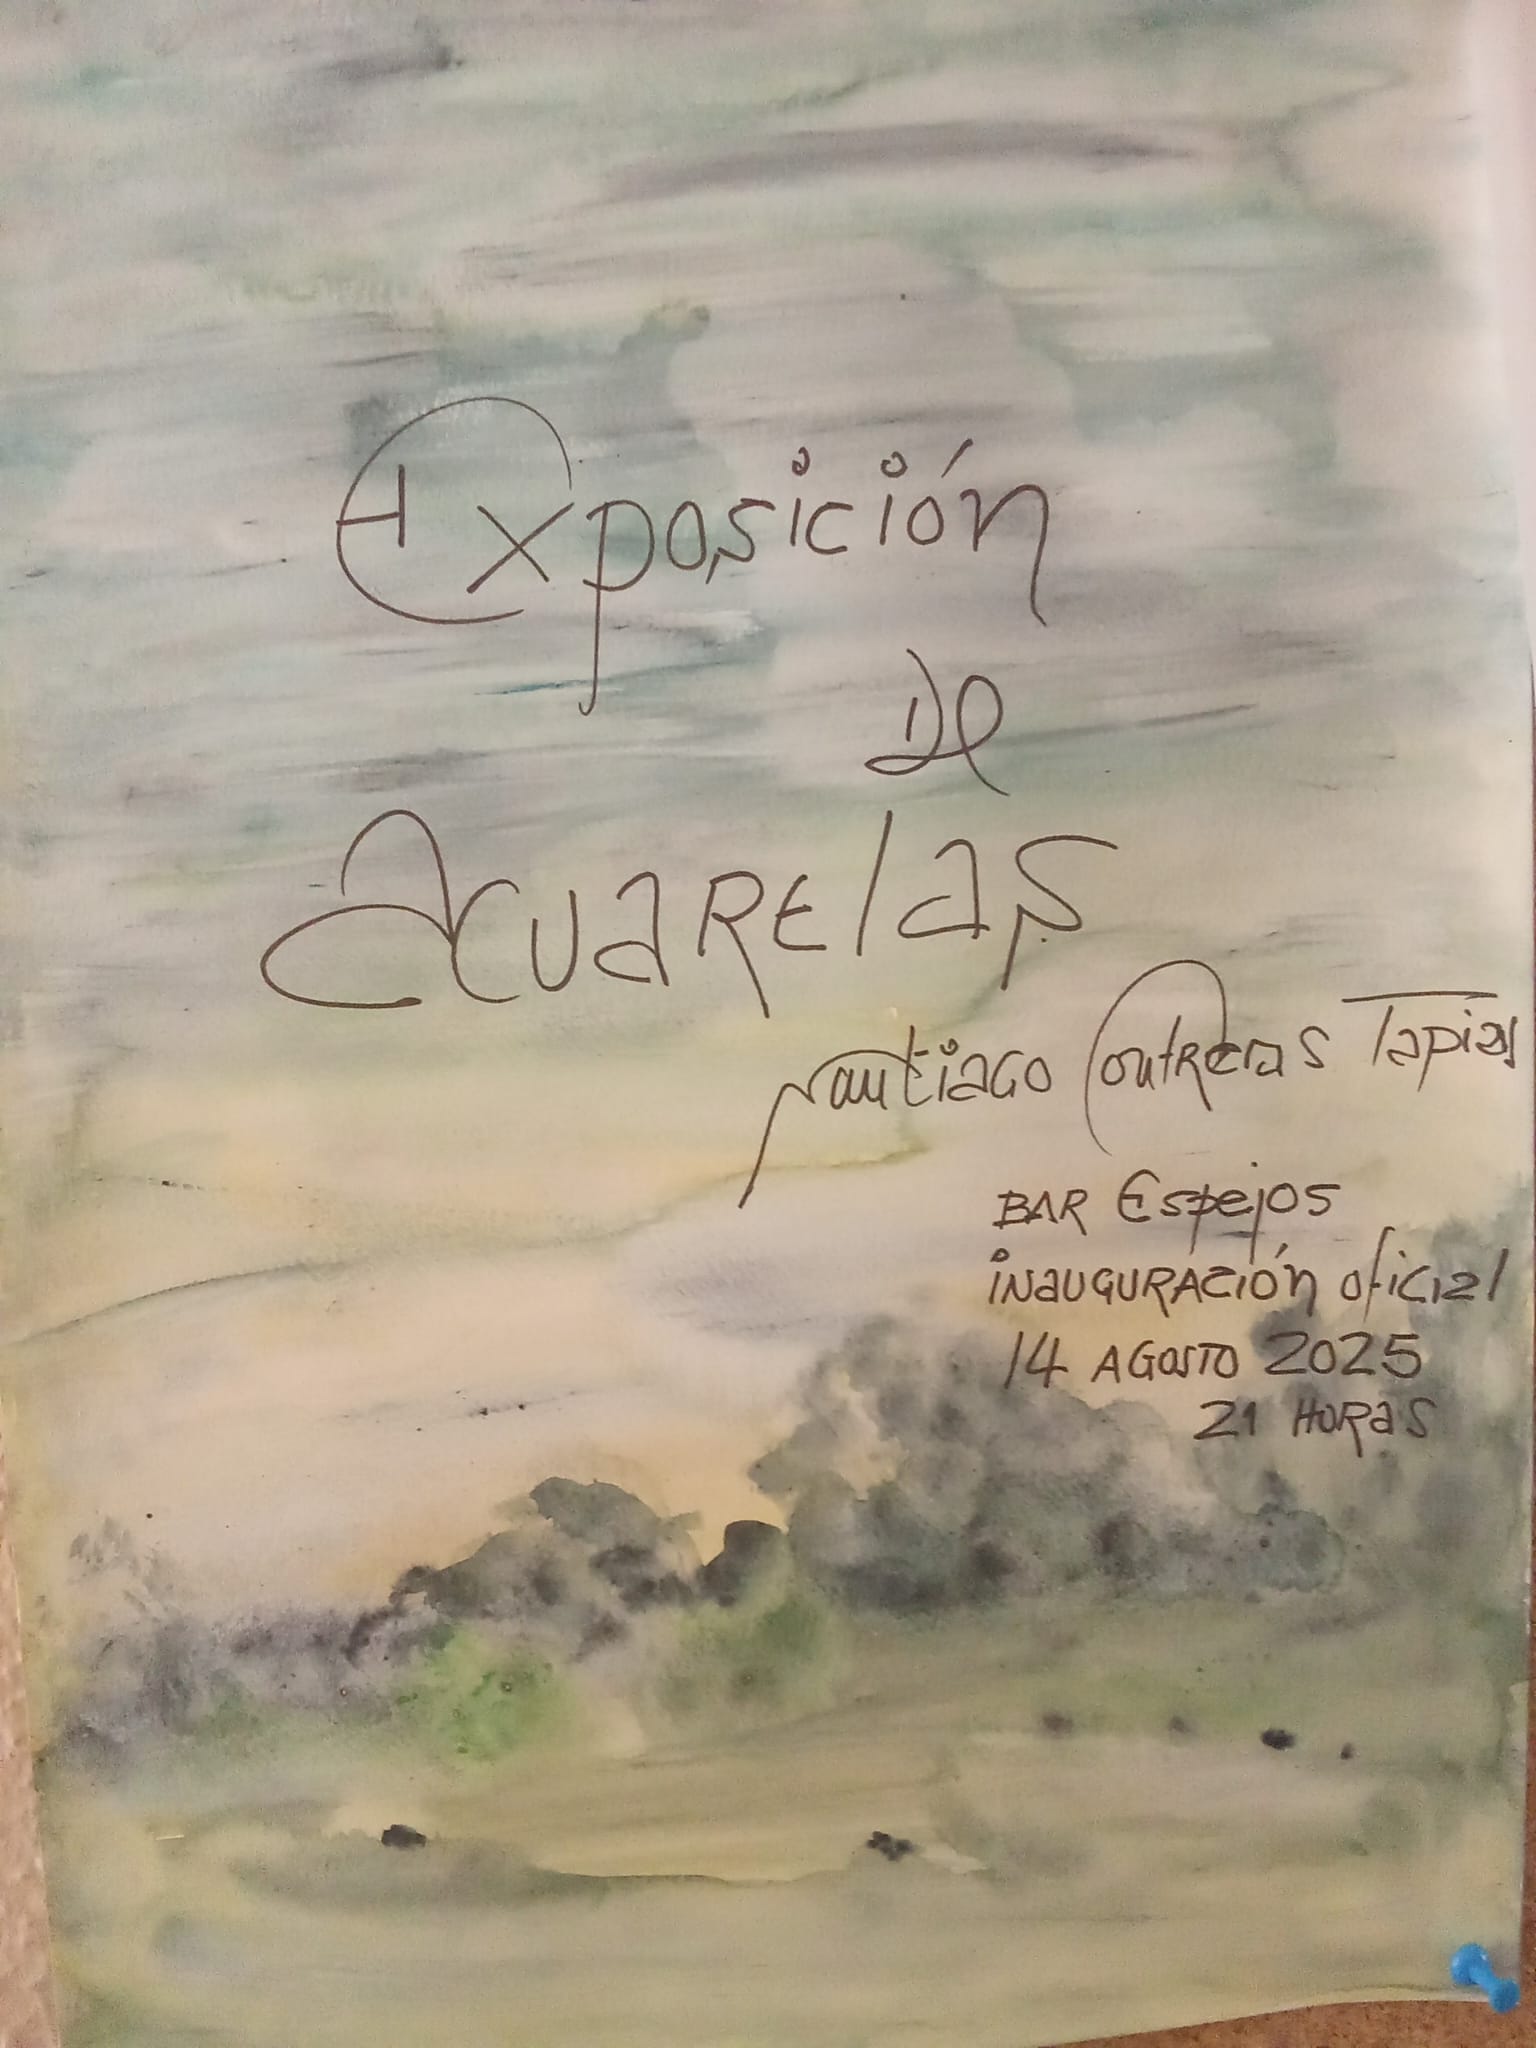 Exposición
DE
AcuarElas
Santiago Contreras Tapias
BAR Espejos
inauguración oficial
14 AGOSTO 2025
21 HORas